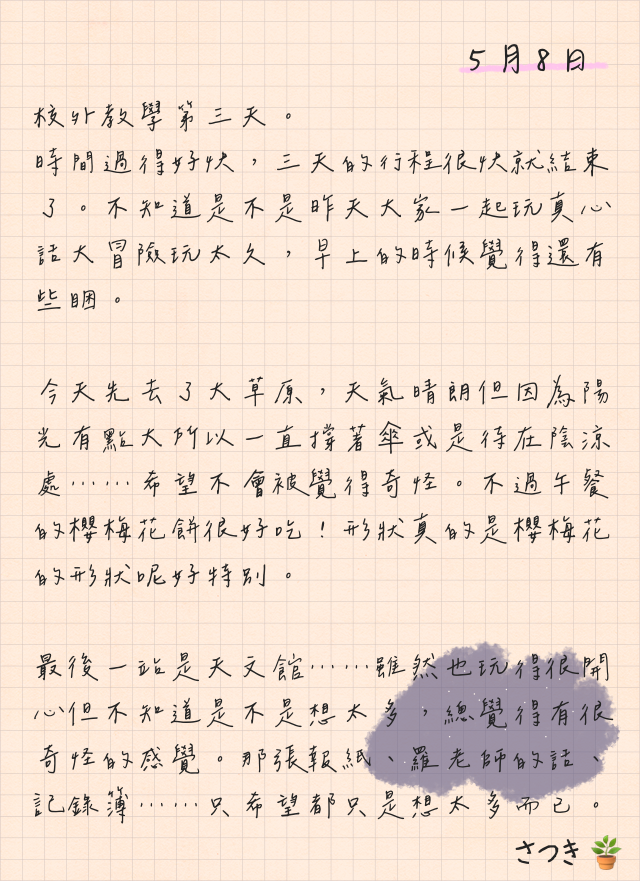 5月8日
校外教學第三天。
時間過得好快，三天的行程很快就結束
了。不知道是不是昨天大家一起玩真心
話大冒險玩太久，早上的時候覺得還有
些睏。
今天先去了大草原，天氣晴朗但因為陽
光有點大所以一直撐著傘或是待在陰涼
處……希望不會被覺得奇怪。不過午餐
的櫻梅花餅很好吃！形狀真的是櫻梅花
的形狀呢好特別。
最後一站是天文館……雖然也玩得很開
心但不知道是不是想太多，總覺得有很
奇怪的感覺。那張報紙、羅老師的話、
記錄簿……只希望都只是想太多而已。
さつき